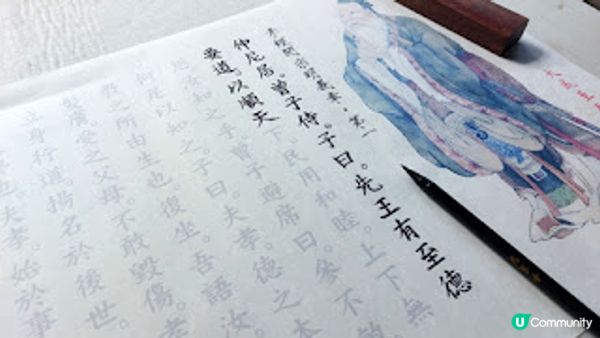 大成至
孝經開宗明義章。第一
仲尼居。曾子侍。子曰。先王有至德
要道。以順天下。民用和睦。上下無
怨。汝知之乎。曾子避席曰。參不敏
何足以知之。子曰。夫孝。德之本
教之所由生也。復坐。吾語汝
髮膚。受之父母。不敢毀傷。孝
立身行道。揚名於後世。
也。夫孝。始於事
U Community